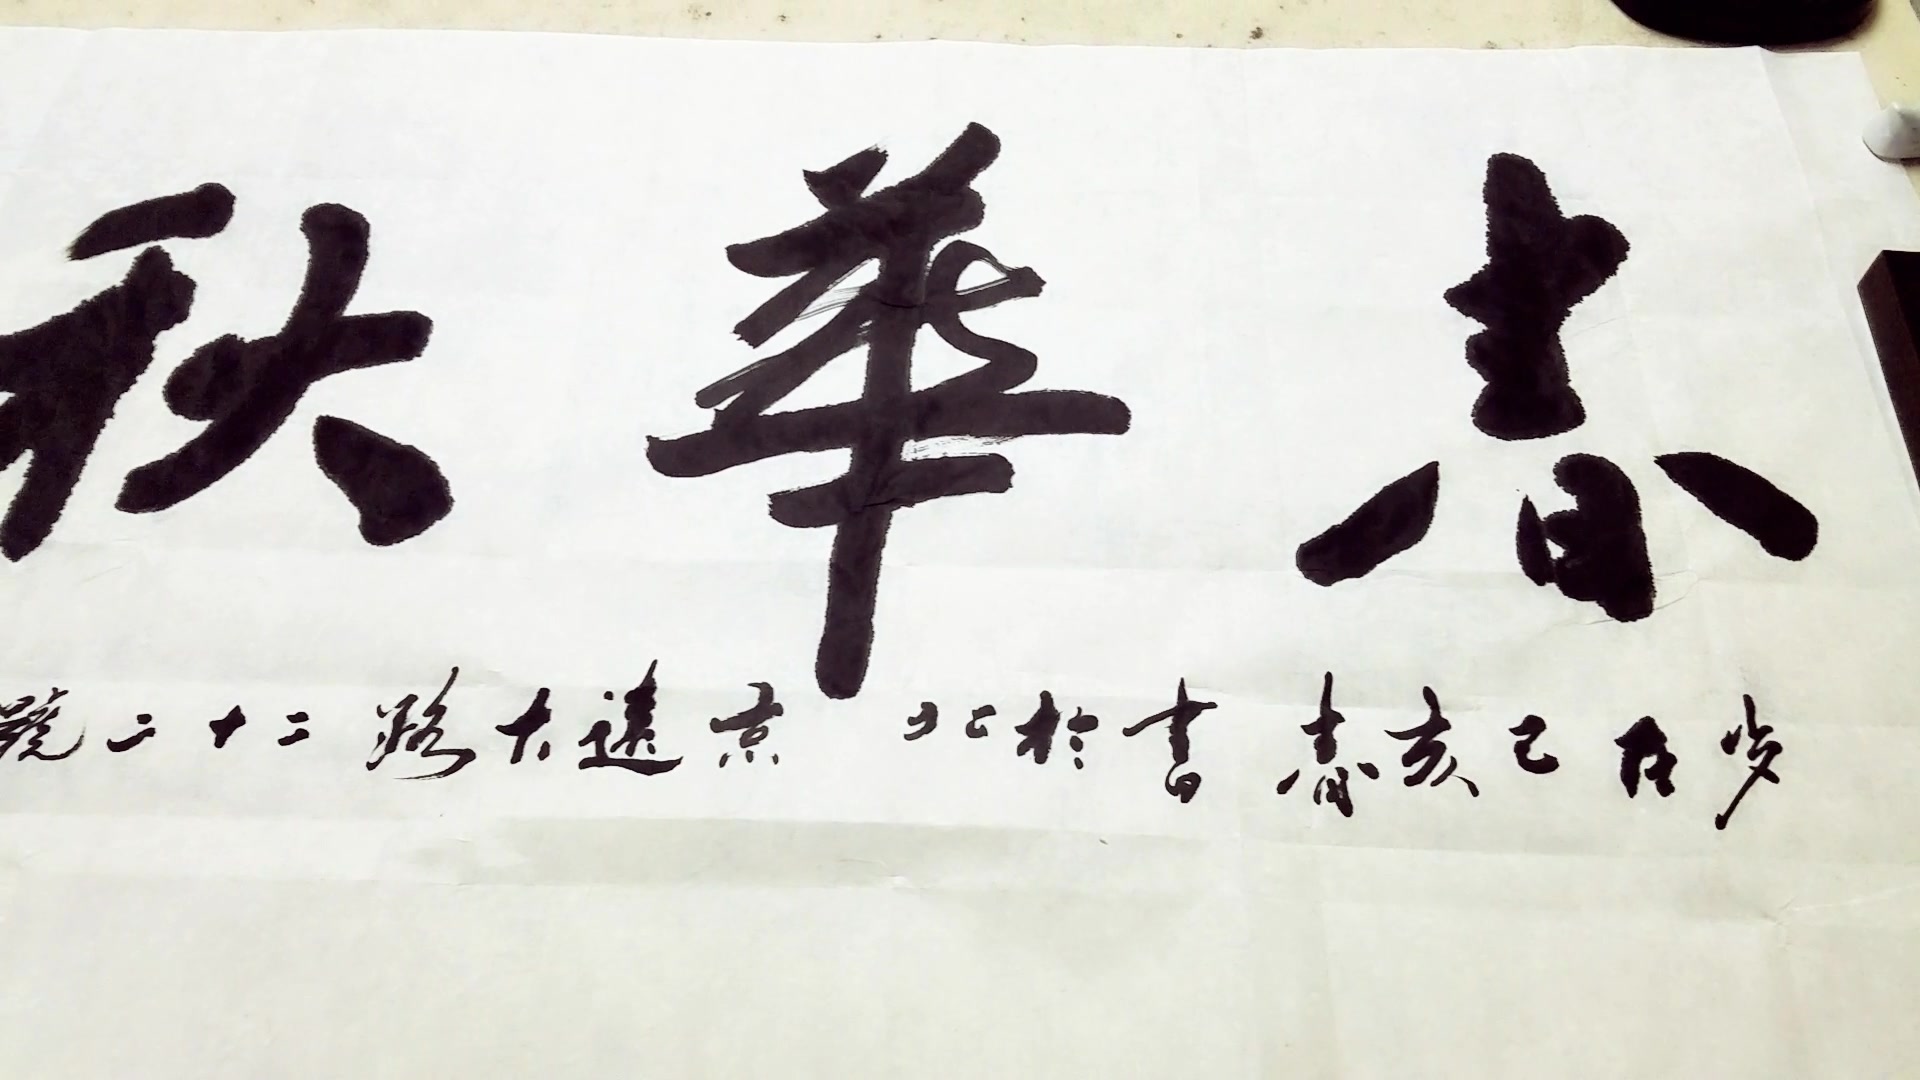 春華秋
歲在己亥春書於北京遠大路二十二號